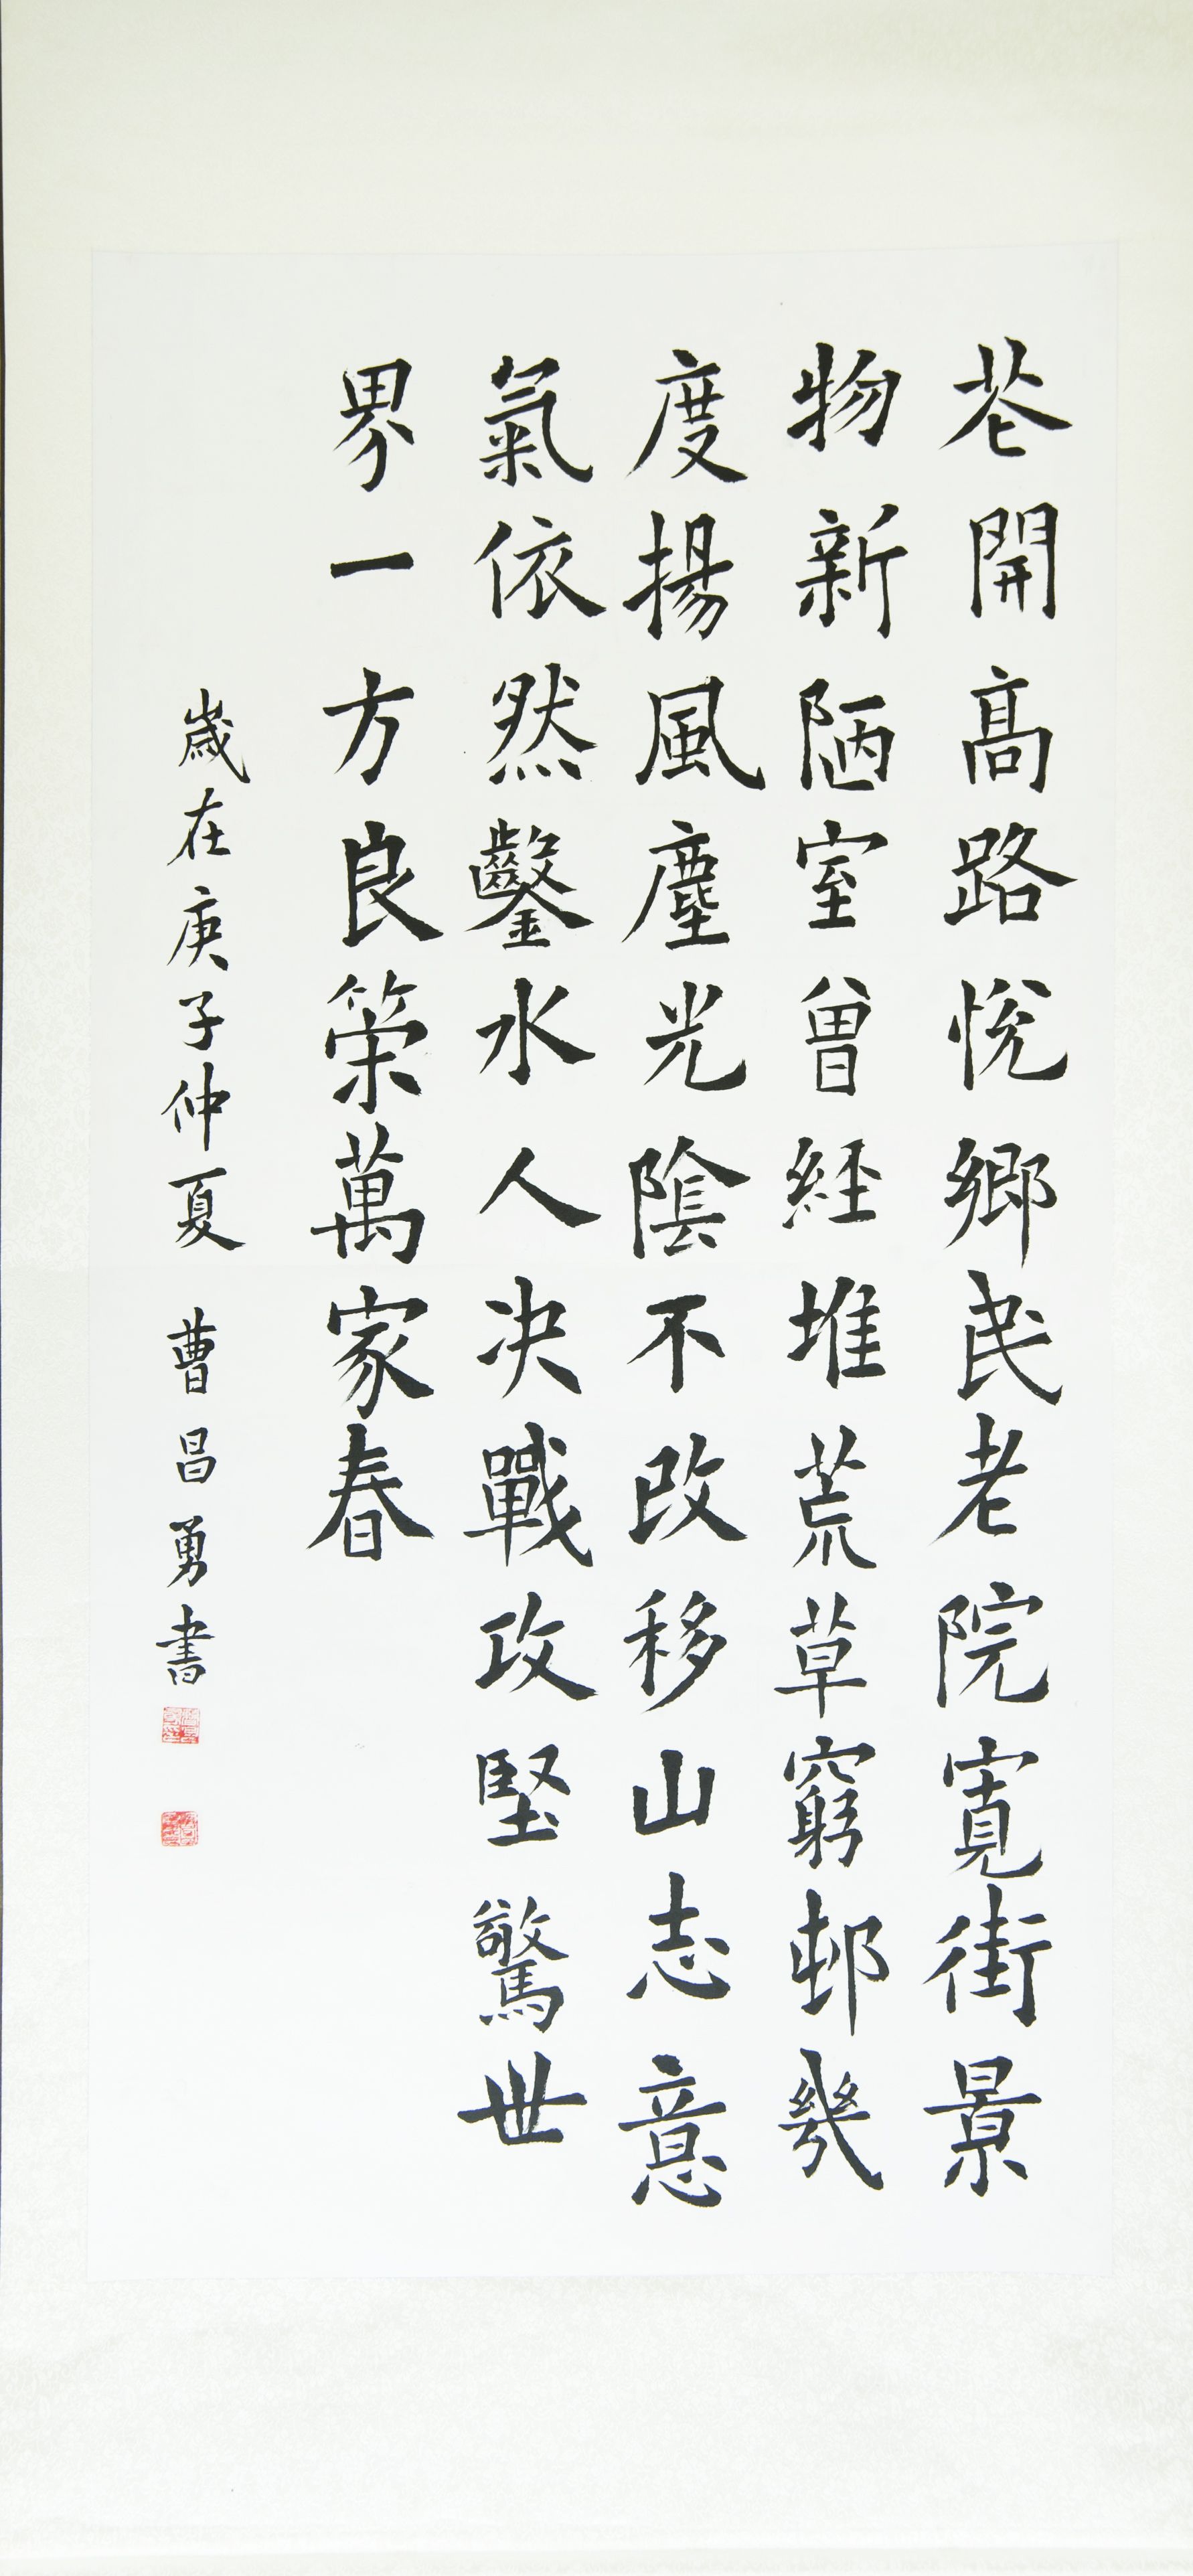 巷開高路悅鄉民老院寬街景
物新陋室曾經堆荒草窮邨幾
度揚風塵光陰不改移山志意
氣依然鑿水人决戰攻堅驚世
界一方良策萬家春
歲在庚子仲夏 曹昌勇書